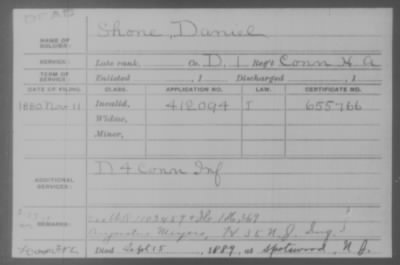 NAME OF SOLDIER: Shone, Daniel
SERVICE: Late rank, Co. D, 1 Reg't Conn H A
TERM OF SERVICE: Enlisted , 1 Discharged , 1
DATE OF FILING. CLASS. APPLICATION NO. LAW. CERTIFICATE NO.
1880 Nov 11 Invalid, 412,094 I 655,766
Widow,
Minor,
ADDITIONAL SERVICES: D 4 Conn Inf
REMARKS:
Augustus Meyers, 35 N.J.
Died Sept 15, 1889, at Spotswood, N.J.